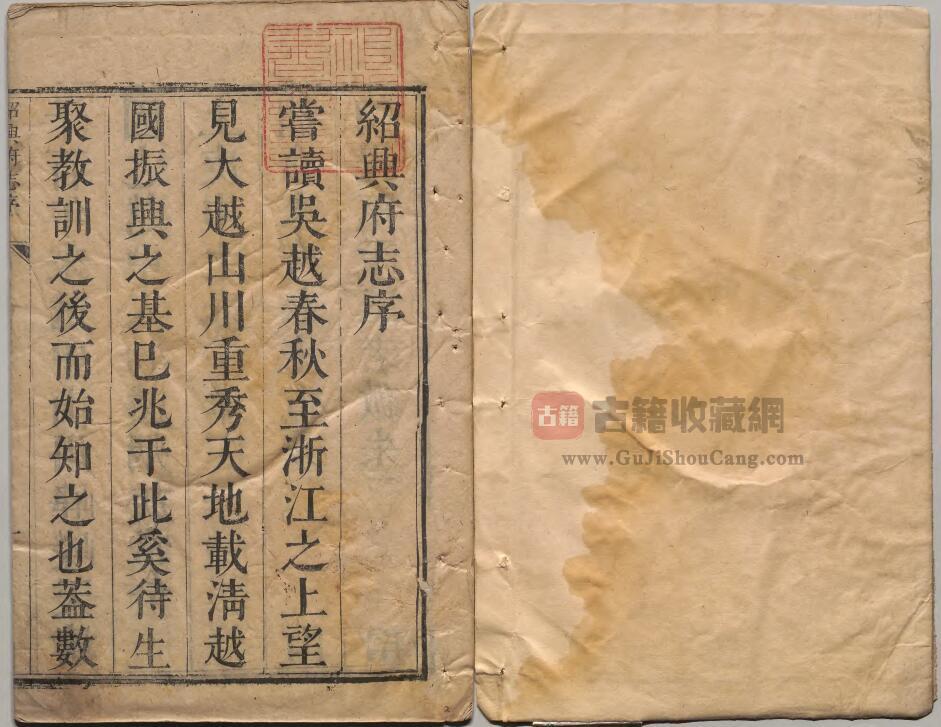 紹興府志序
嘗讀吳越春秋至浙江之上望
見大越山川重秀天地載淸越
國振興之基已兆于此奚待生
聚教訓之後而始知之也葢數
紹興府志序
古籍
古籍收藏網
www.GuJiShouCang.com